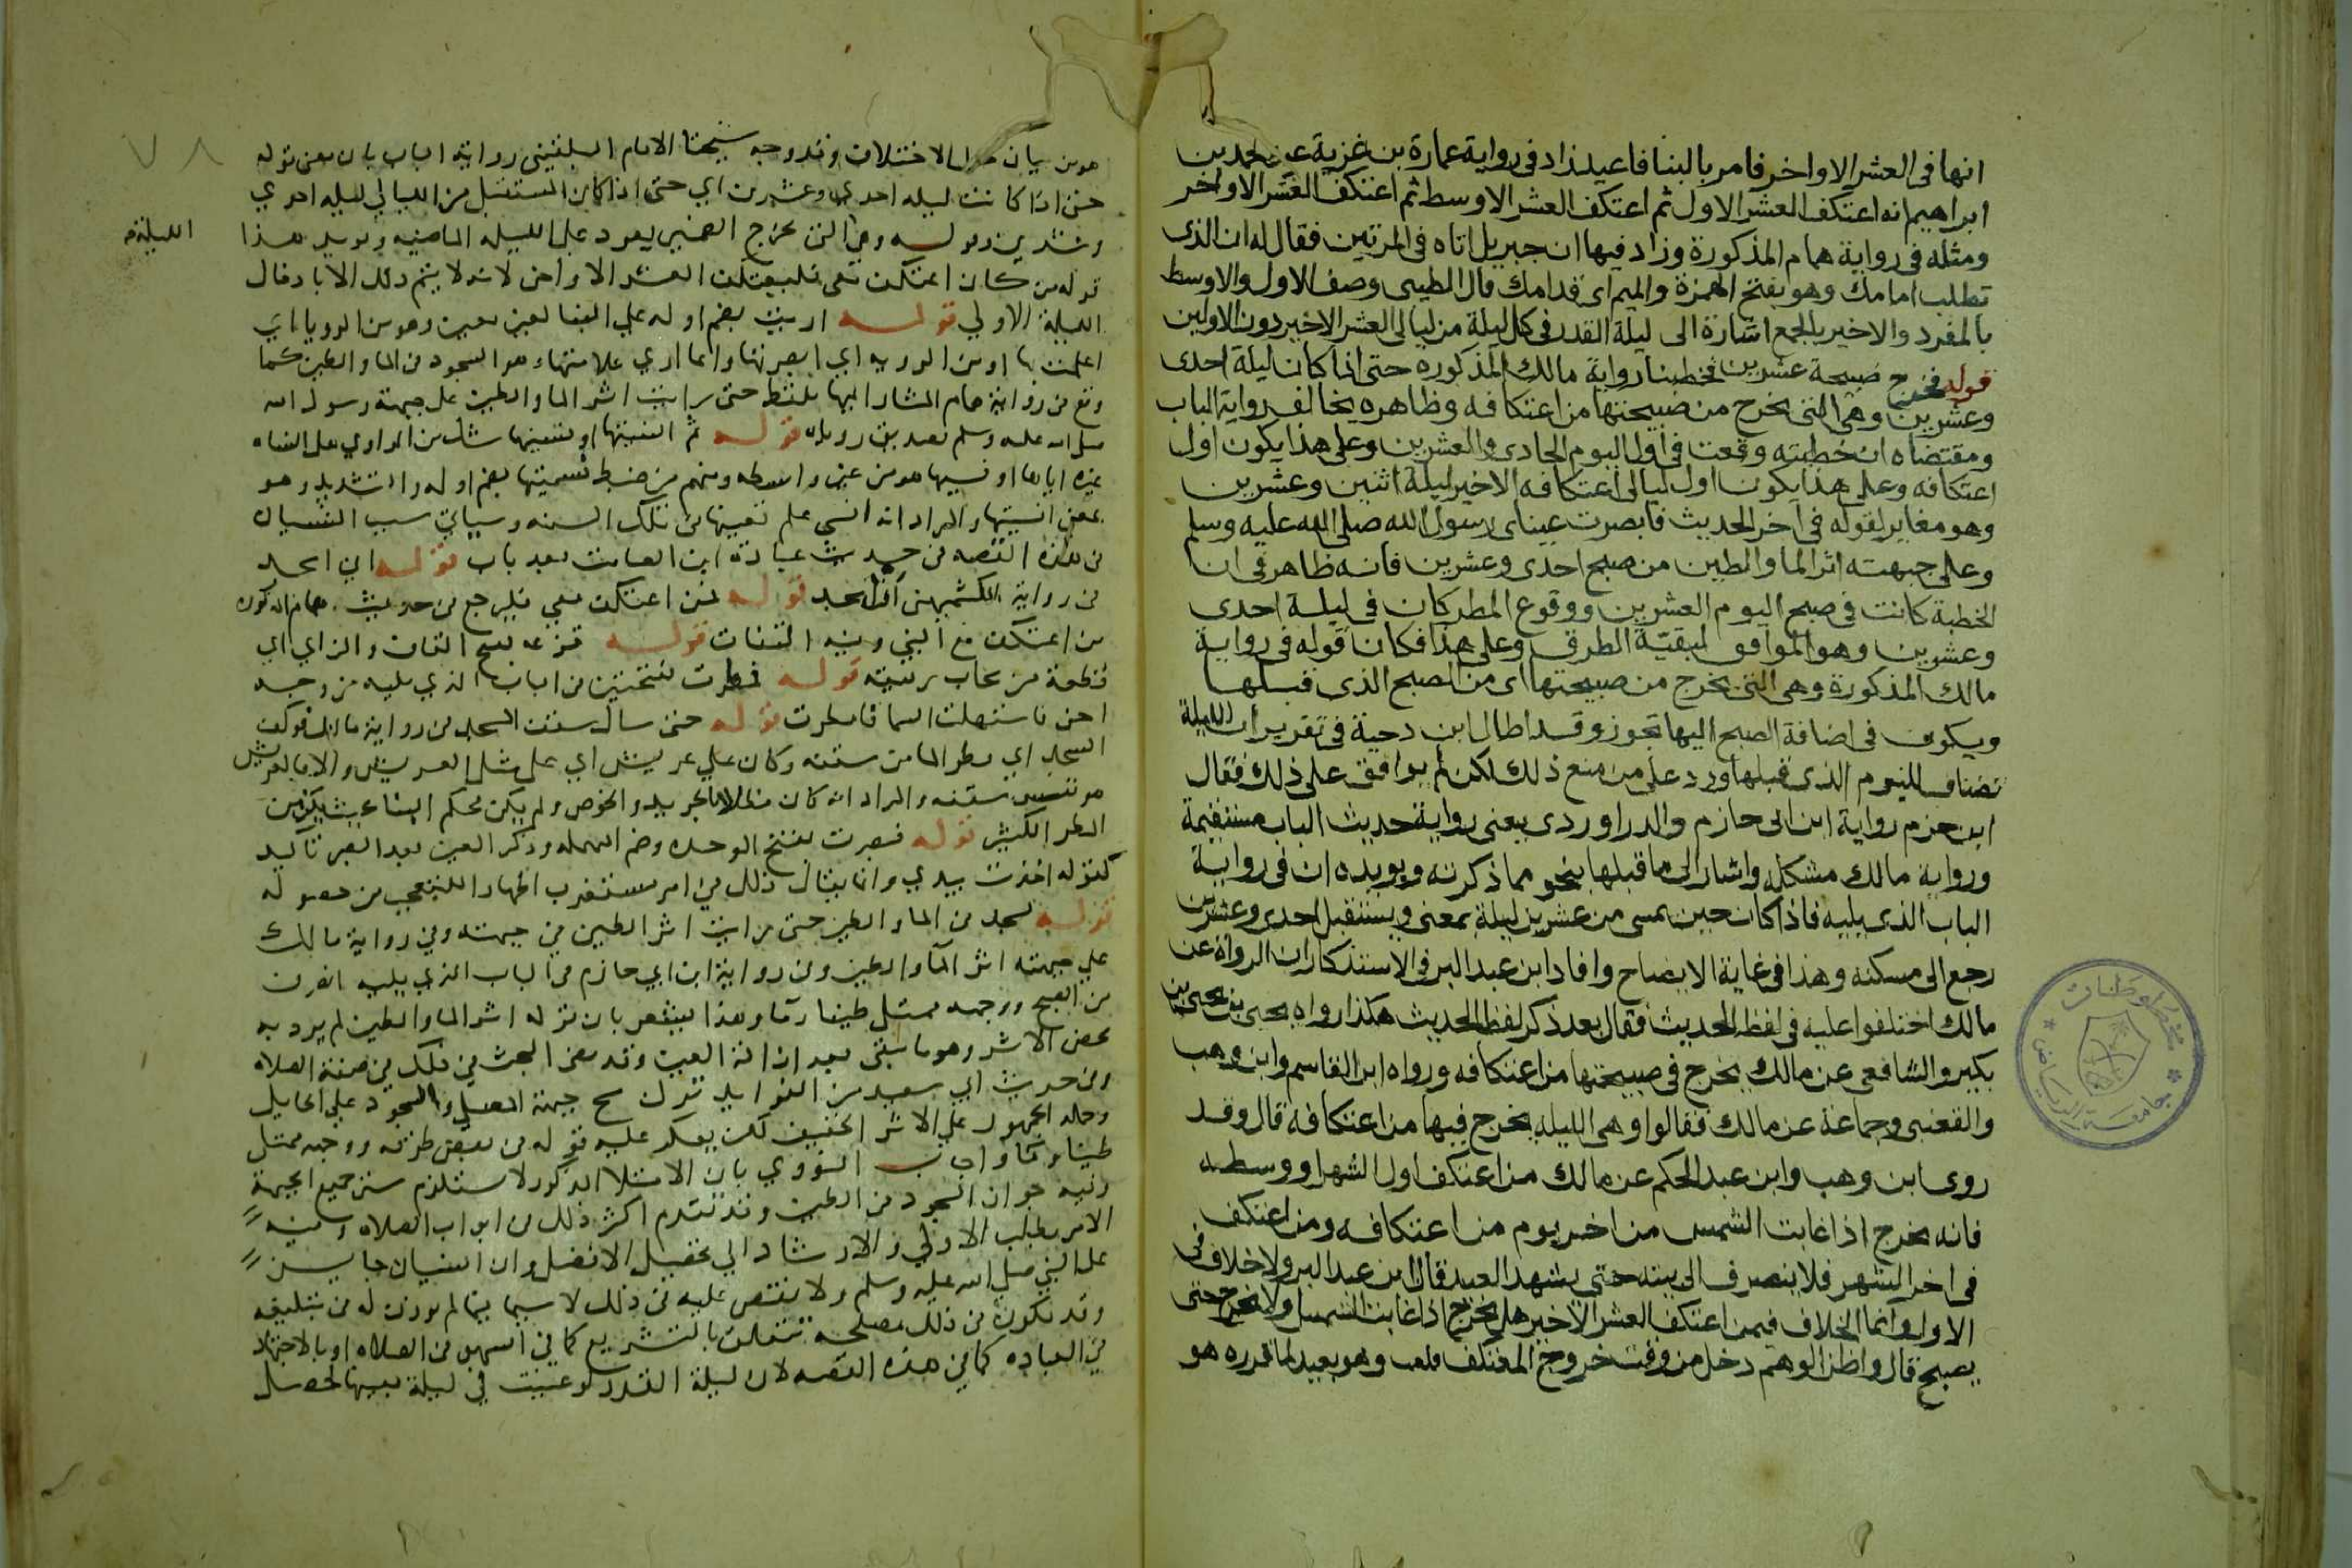 انها فى العشر الاواخر فامر بالبنا فاعيد زاد فى رواية عمارة بن غزية عن محمد بن
ابراهيم انه اعتكف العشر الاول ثم اعتكف العشر الاوسط ثم اعتكف العشر الاواخر
ومثله فى رواية همام المذكورة وزاد فيها ان جبريل اتاه فى المرتين فقال له ان الذى
تطلب امامك وهو بفتح الهمزة والميم اى قدامك قال الطيبى وصف الاول والاوسط
بالمفرد والاخير بالجمع اشارة الى ليلة القدر فى كل ليلة من ليالى العشر الاخير دون الاولين
قوله فخرج صبيحة عشرين فخطبنا رواية مالك المذكوره حتى اذا كان ليلة احدى
وعشرين وهى التى يخرج من صبيحتها من اعتكافه وظاهره يخالف رواية الباب
ومقتضاه ان خطبته وقعت فى اول اليوم الحادى والعشرين وعلى هذا يكون اول
اعتكافه وعلى هذا يكون اول ليالى اعتكافه الاخير ليلة اثنين وعشرين
وهو مغاير لقوله فى اخر الحديث فابصرت عيناى رسول الله صلى الله عليه وسلم
وعلى جبهته اثر الما والطين من صبح احدى وعشرين فانه ظاهر فى ان
الخطبة كانت فى صبح اليوم العشرين ووقوع المطر كان فى ليلة احدى
وعشرين وهو الموافق لبقية الطرق وعلى هذا فكان قوله فى رواية
مالك المذكورة وهى التى يخرج من صبيحتها اى من الصبح الذى قبلها
ويكون فى اضافة الصبح اليها تجوز وقد اطال ابن دحية فى تقرير ان الليلة
تضاف لليوم الذى قبلها ورد على من منع ذلك لكن لم يوافق على ذلك فقال
ابن حزم رواية ابن ابى حازم والدراوردى يعنى رواية حديث الباب مستقيمة
ورواية مالك مشكلة واشار الى ما قبلها بنحو مما ذكرته ويويده ان فى رواية
الباب الذى يليه فاذا كان حين يمسى من عشرين ليلة بمعنى ويستقبل احدى وعشرين
رجع الى مسكنه وهذا فى غاية الايضاح وافاد ابن عبد البر فى الاستذكار ان الرواة عن
مالك اختلفوا عليه فى لفظ الحديث فقال بعد ذكر لفظ الحديث هكذا رواه يحيى بن يحيى بن
بكير والشافعى عن مالك يخرج فى صبيحتها من اعتكافه ورواه ابن القاسم وابن وهب
والقعنبى وجماعة عن مالك فقالوا وهى الليله يخرج فيها من اعتكافه قال وقد
روى ابن وهب وابن عبد الحكم عن مالك من اعتكف اول الشهر او وسطه
فانه يخرج اذا غابت الشمس من اخر يوم من اعتكافه ومن اعتكف
فى اخر الشهر فلا ينصرف الى بيته حتى يشهد العيد قال ابن عبد البر ولا خلاف فى
الاول وانما الخلاف فيمن اعتكف العشر الاخير هل يخرج اذا غابت الشمس او لا يخرج حتى
يصبح قال واظن الوهم دخل من وقت خروج المعتكف قلت وهو بعيد لما قرره هو
٧٨
هو من بيان محل الاختلاف وقد وجه شيخنا الامام البلقيني رواية الباب بان معنى قوله
حتى اذا كانت ليلة احدى وعشرين اي حتى اذا كان المستقبل من الليالي ليلة احدي
وعشرين وقوله وهي التي يخرج الضمير يعود على الليلة الماضيه ويويد هذا
الليلة
قوله من كان اعتكف معي فليعتكف العشر الاواخر لانه لا يتم ذلك الا بادخال
الليلة الاولي قوله اريت بضم اوله علي البنا لغير معين وهو من الرويا اي
اعلمت بها او من الرويه اي ابصرتها وانما اري علامتها وهو السجود في الما والطين كما
وقع في رواية همام المشار اليها بلفظ حتى رايت اثر الما والطين على جبهة رسول الله
صلى الله عليه وسلم تصديق روياه قوله ثم انسيتها او نسيتها شك من الراوي هل انساه
غيره اياها او نسيها هو من غير واسطه ومنهم من ضبط نسيتها بضم اوله والتشديد وهو
بمعنى انسيتها والمراد انه انسي علم تعيينها في تلك السنه وسياتي سبب النسيان
في هذه القصه في حديث عبادة ابن الصامت بعد باب قوله اني اسجد
في رواية الكشميهني ان اسجد قوله فمن اعتكف معي فليرجع في حديث همام المذكور
من اعتكف مع النبي وفيه التفات قوله قزعه بفتح القاف والزاي اي
قطعة من سحاب رقيقه قوله فمطرت بفتحتين في الباب الذي يليه من وجه
اخر فاستهلت السما فامطرت قوله حتى سال سقف المسجد في رواية مالك فوكف
المسجد اي قطر الما من سقفه وكان علي عريش اي على مثل العريش والا فالعريش
هو نفس سقفه والمراد انه كان مظللا بالجريد والخوص ولم يكن محكم البنا بحيث يكن من
المطر الكثير قوله فبصرت بفتح الموحده وضم المهمله وذكر العين بعد البصر تاكيد
كقوله اخذت بيدي وانما يقال ذلك في امر مستغرب اظهارا للتعجب من حصوله
قوله يسجد في الما والطين حتى رايت اثر الطين في جبهته وفي رواية مالك
علي جبهته اثر المآ والطين وفي رواية ابن ابي حازم في الباب الذي يليه انصرف
من الصبح ووجهه ممتلي طينا ومآ وهذا يشعر بان قوله اثر الما والطين لم يرد به
محض الاثر وهو ما يبقى بعد ازالة العين وقد مضى البحث في ذلك في صفة الصلاه
وفي حديث ابي سعيد من الفوايد ترك مسح جبهة المصلي والسجود علي الحايل
وحمله الجمهور علي الاثر الخفيف لكن يعكر عليه قوله في بعض طرقه ووجهه ممتلي
طينا وماء واجاب النووي بان الامتلا المذكور لا يستلزم ستر جميع الجبهة
وفيه جواز السجود في الطين وقد تقدم اكثر ذلك في ابواب الصلاه وفيه
الامر بطلب الاولي والارشاد الي تحصيل الافضل وان النسيان جايز
على النبي صلى الله عليه وسلم ولا نقص عليه في ذلك لا سيما فيما لم يوذن له في تبليغه
وقد يكون في ذلك مصلحة تتعلق بالتشريع كما في السهو في الصلاه او بالاجتهاد
في العباده كما في هذه القصه لان ليلة القدر لو عينت في ليلة بعينها لحصل